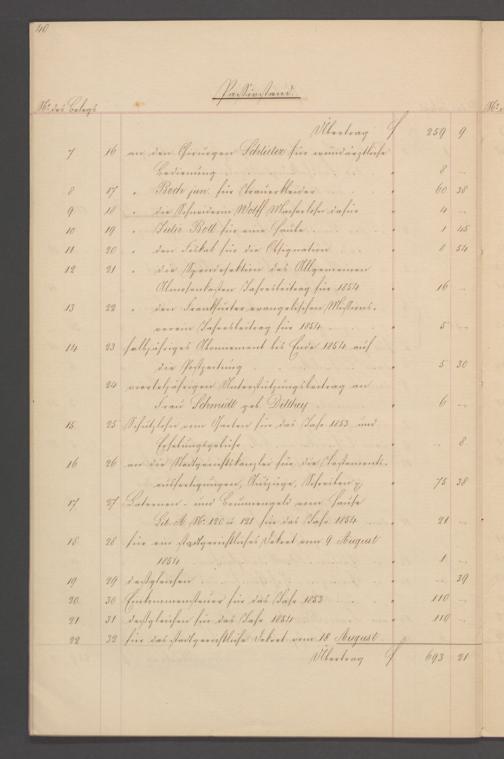 40
Passivstand.
No. des Belegs
Übertrag f 259 9
7 16 an den Chirurgen Schlüter für wundärztliche
Bedienung " 8 -
8 17 " Bode jun. für Trauerkleider " 60 38
9 18 " die Schneiderin Wolff Macherlohn dafür " 4 -
10 19 " Peter Boll für eine Haube " 1 45
11 20 " den Fiskal für die Obsignation " 8 54
12 21 " die Spendesektion des Allgemeinen
Almosenkasten Jahresbeitrag für 1854 " 16 -
13 22 " den Frankfurter evangelischen Missions-
verein Jahresbeitrag für 1854 " 5 -
14 23 halbjähriges Abonnement bis Ende 1854 auf
die Postzeitung " 5 30
24 vierteljährigen Unterstützungsbeitrag an
Frau Schmidt geb. Dilthey " 6 -
15 25 vom Garten für das Jahr 1853 und
Erhebungsgebühr " - 8
16 26 an die Stadtgerichtskanzlei für die Testaments-
ausfertigungen, Auszüge, Schreiben " 75 38
17 27 Laternen- und Brunnengeld vom Hause
Lit. A No. 120 u 121 für das Jahr 1854 " 21 -
18 28 für ein stadtgerichtliches Dekret vom 9 August
1854 " 1 -
19 29 desgleichen " - 39
20 30 Einkommensteuer für das Jahr 1853 " 110 -
21 31 desgleichen für das Jahr 1854 " 110 -
22 32 für das stadtgerichtliche Dekret vom 18 August
Übertrag f 693 21